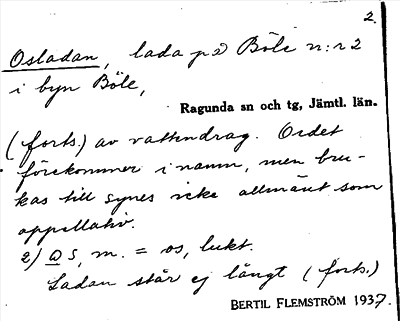 2.
Osladan, lada på Böle n:r 2
i byn Böle,
Ragunda sn och tg, Jämtl. län.
(forts.) av vattendrag. Ordet
förekommer i namn, men bru-
kas till synes icke allmänt som
appellativ.
2) os, m. = os, lukt.
Ladan står ej långt (forts.)
BERTIL FLEMSTRÖM 1937.